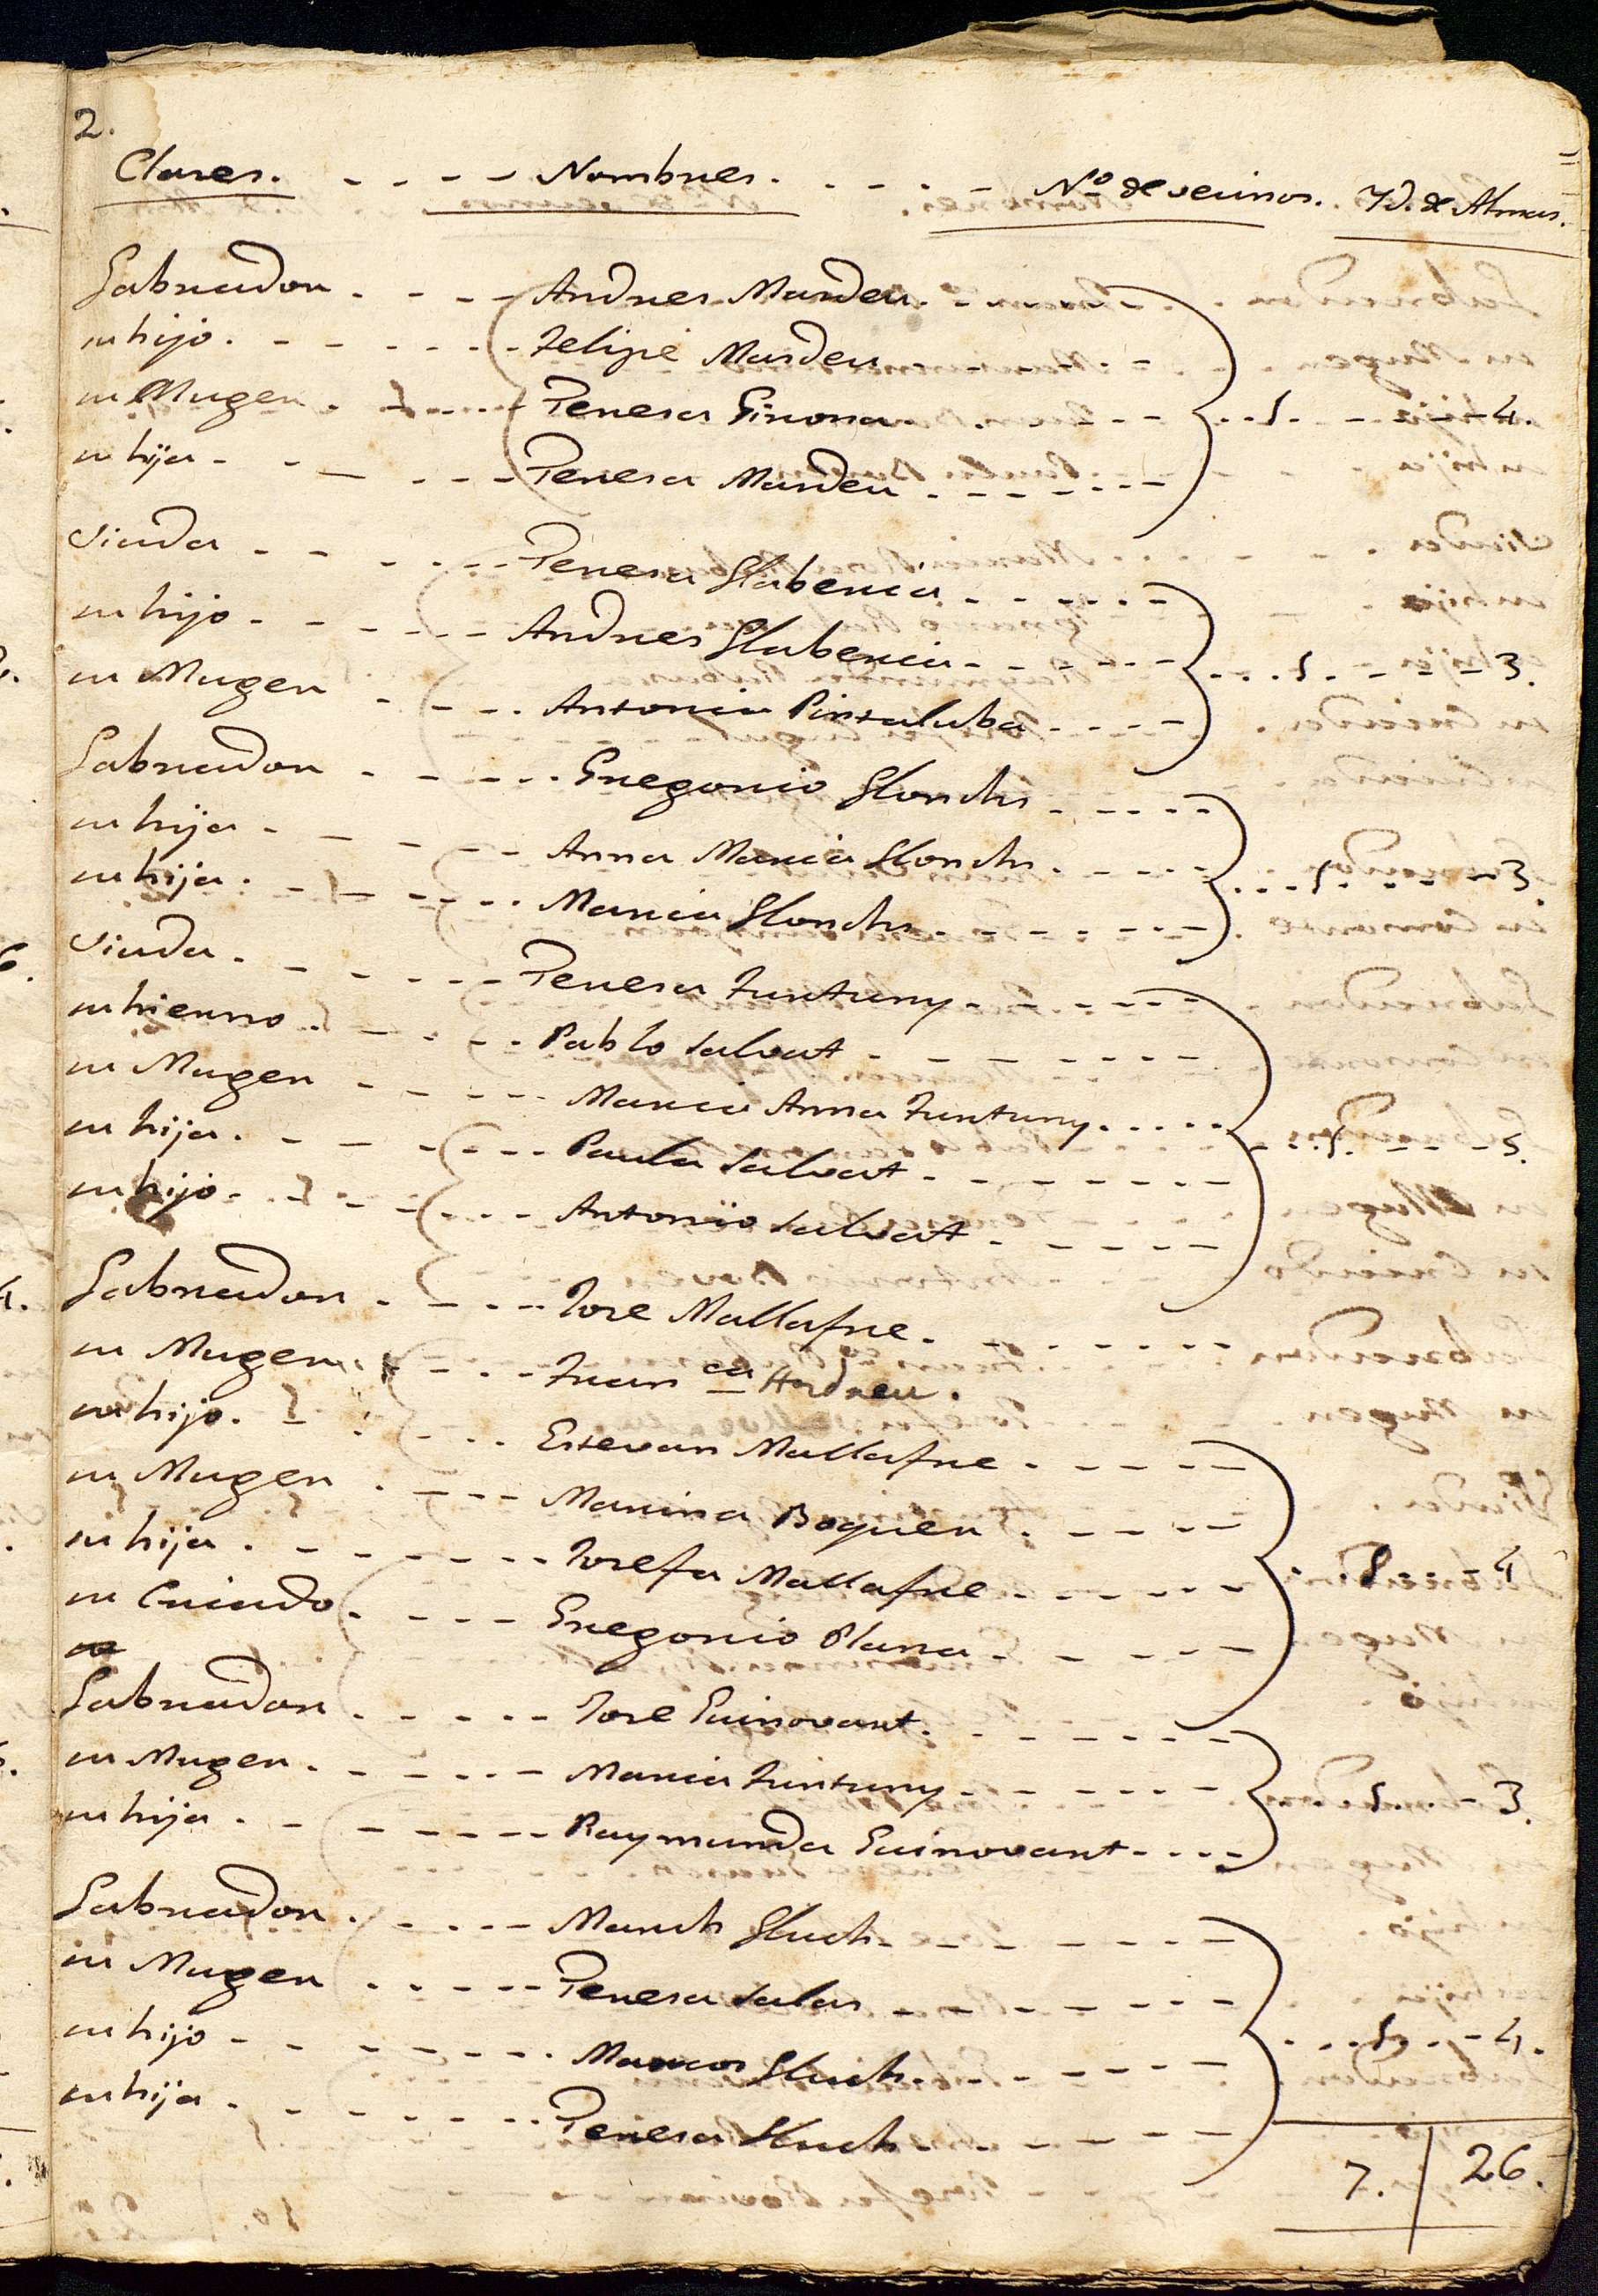 2.
Clases. - - - - Nombres. - - - - Nº de vecinos. Yd. de Almas.
Labrador - - - - Andres Mardeu - - -
su hijo. - - - - Felipe Mardeu
su Muger - - - - Teresa Girona - - - 1. - - - 4.
su hija - - - - Teresa Mardeu - - - -
Viuda - - - - Teresa Llaberia - - - -
su hijo - - - - Andres Llaberia - - - - 1. - - - 3.
su Muger - - - - Antonia Pintaluba - - - -
Labrador - - - - Gregorio Llonchs - - - -
su hija - - - - Anna Maria Llonchs - - - - 1. - - - 3.
su hija. - - - - Maria Llonchs - - - -
Viuda. - - - - Teresa Funtuny - - - -
su hierno. - - - - Pablo Salvat - - - -
su Muger - - - - Maria Anna Funtuny - - - - 1. - - - 5.
su hija. - - - - Paula Salvat - - - -
su hijo - - - - Antonio Salvat - - - -
Labrador - - - - Jose Mallafre - - - -
su Muger - - - Fran ca Hordneu.
su hijo. - - - - Estevan Mallafre - - - -
su Muger - - - - Marina Boquer - - - -
su hija - - - - Josefa Mallafre - - - - 1. - - 4
su Criado. - - - - Gregorio Plana - - - -
Labrador - - - - Jose Guinovart - - - -
su Muger. - - - - Maria Funtuny - - - - 1. - - 3.
su hija. - - - - Raymunda Guinovart - - - -
Labrador. - - - - March Lluch - - - -
su Muger - - - - Teresa Salas - - - -
su hijo - - - - Marcos Lluch - - - - 1. - - 4.
su hija. - - - - Teresa Lluch - - - -
7. 26.